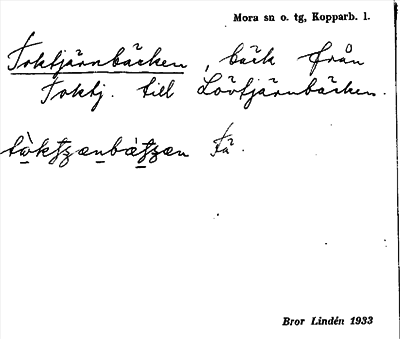 Mora sn o. tg, Kopparb. l.
Toktjärnbäcken, bäck från
Toktj. till Lövtjärnbäcken.
Bror Lindén 1933